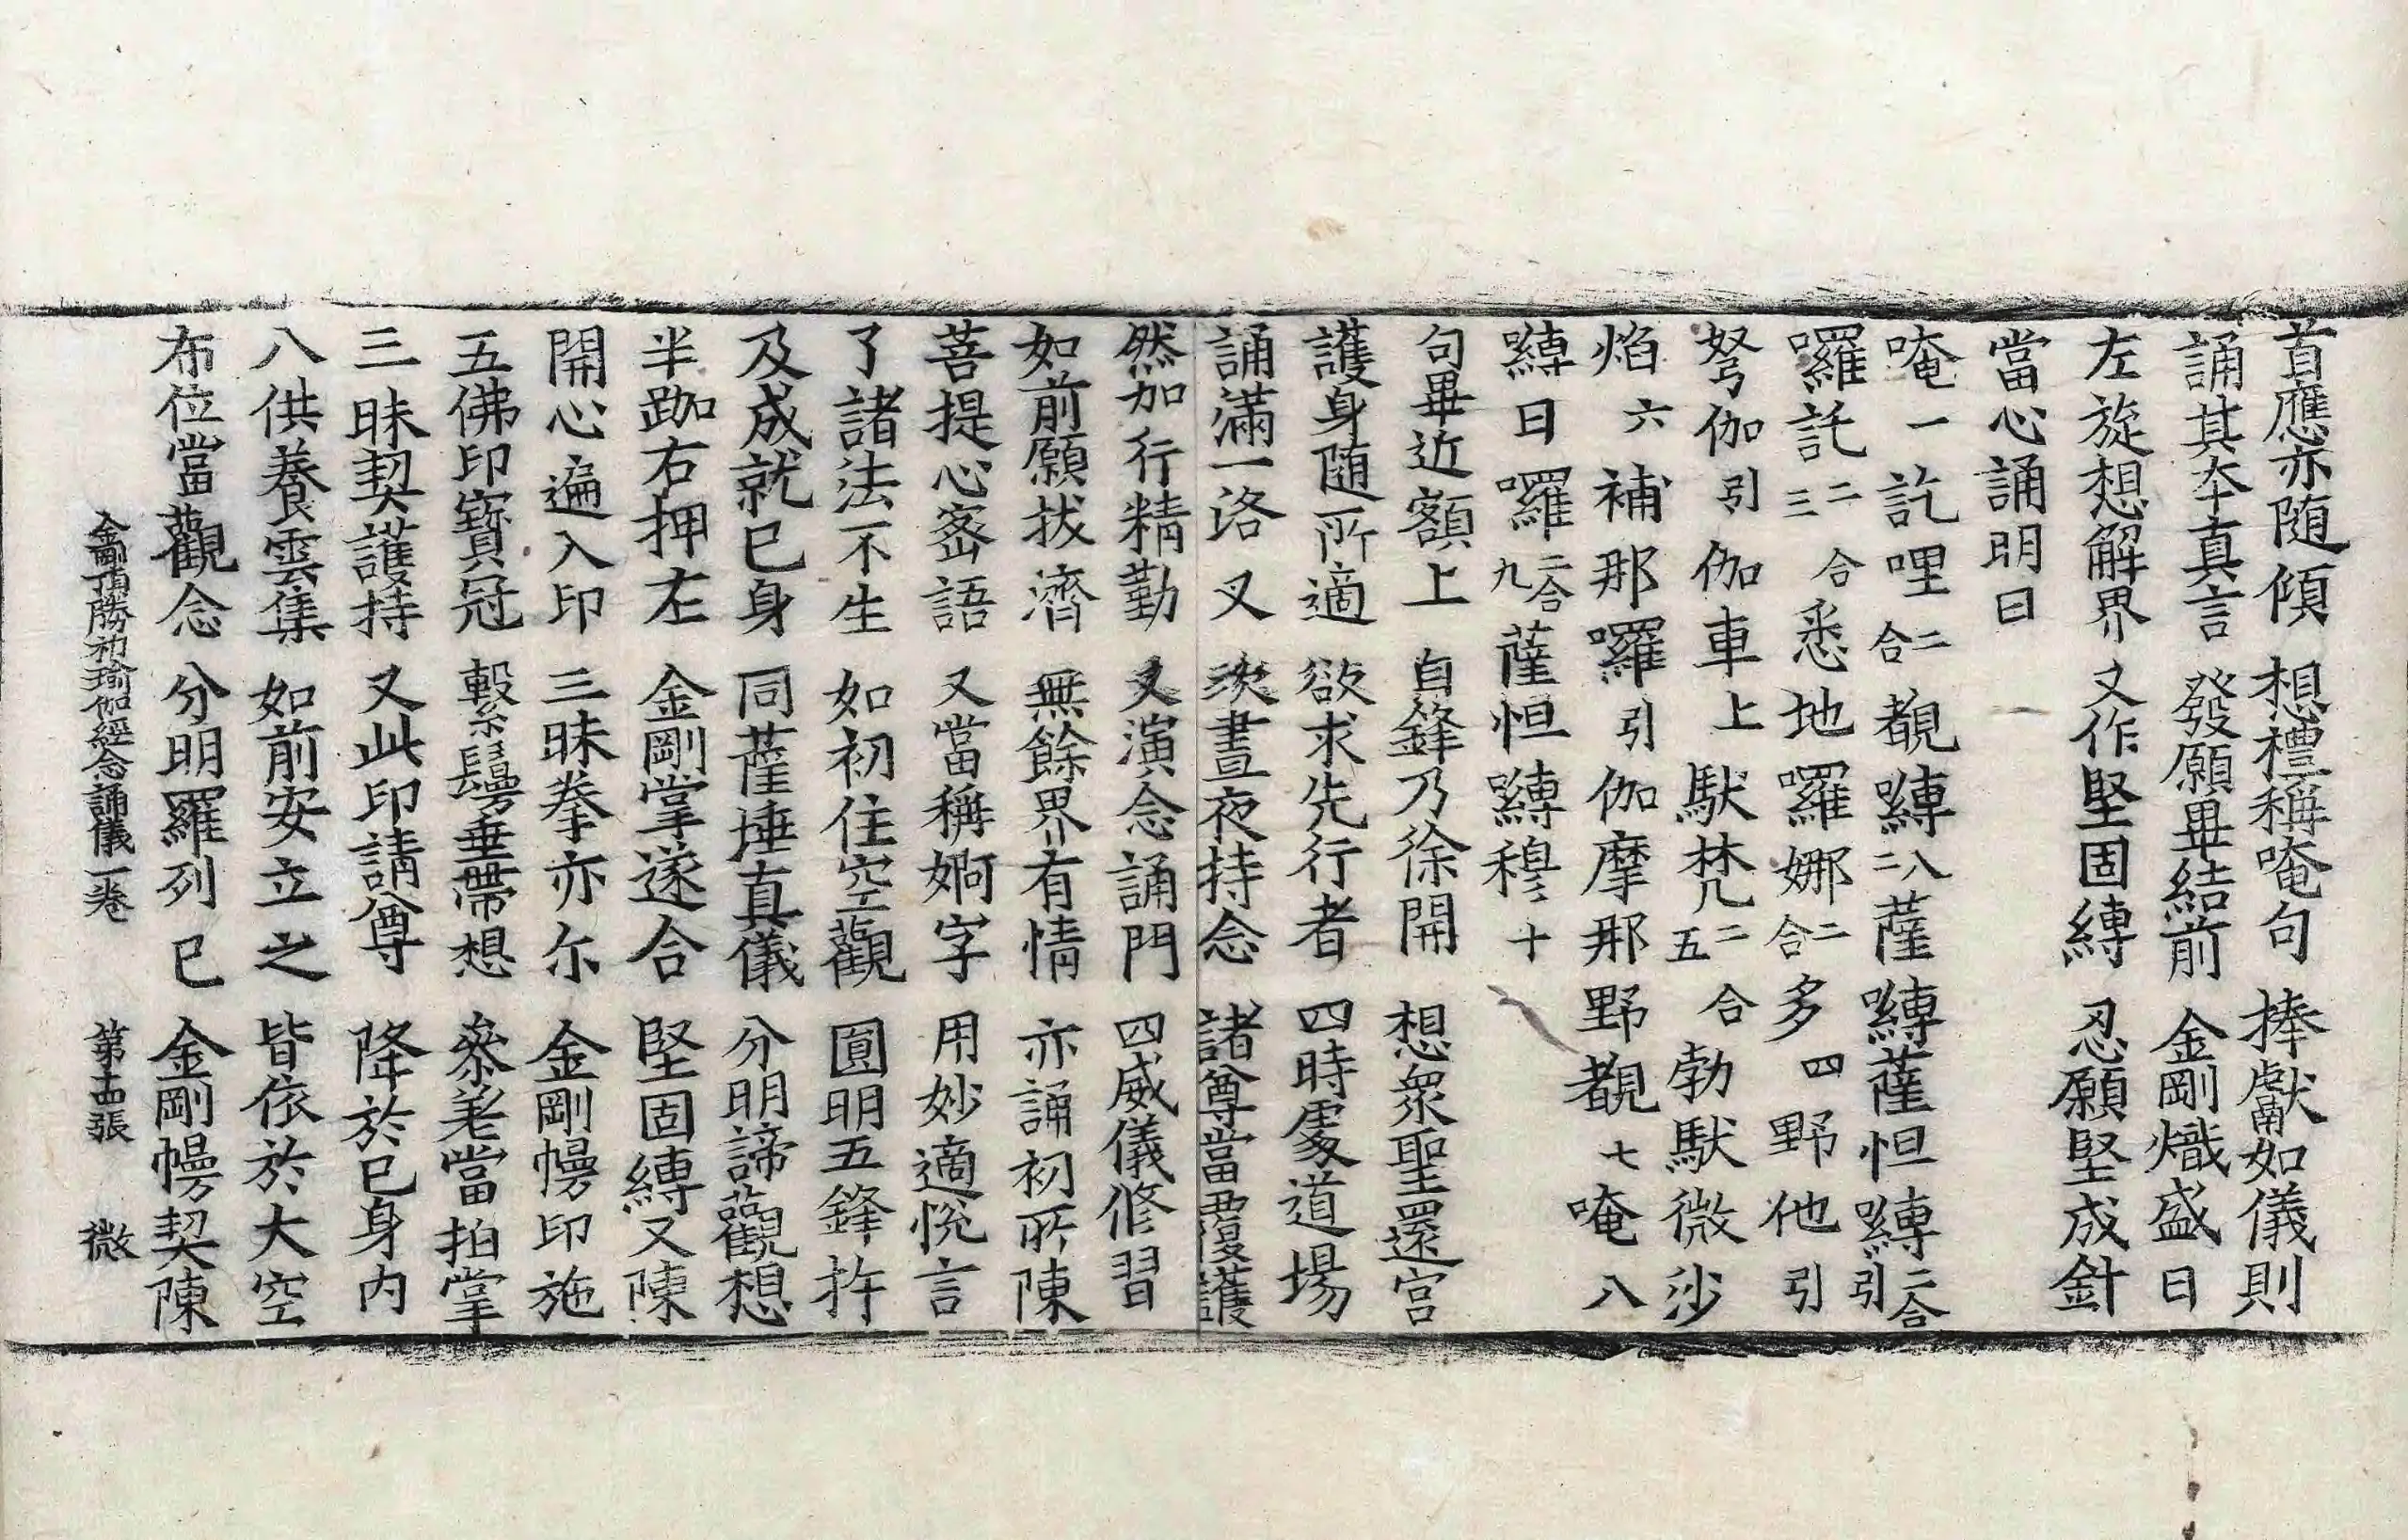 首應亦随傾 想禮稱唵句 捧獻如儀則
誦其夲真言 發願畢結前 金剛熾盛日
左旋想解界 又作堅固縛 忍願堅成針
當心誦明曰
唵一訖哩二合覩嚩二八薩嚩薩怛嚩二合引
囉託二三合悉地囉娜二合多四野他引
弩伽引伽車上馱梵二五合勃馱微沙
焰六補那囉引伽摩那野覩七唵八
嚩日囉二合九薩怛嚩穆十
句畢近額上 自鋒乃徐開 想衆聖還宫
護身随所適 欲求先行者 四時處道場
誦滿一洛叉 決晝夜持念 諸尊當覆護
然加行精勤 又演念誦門 四威儀修習
如前願拔濟 無餘界有情 亦誦初所陳
菩提心密語 又當稱婀字 用妙適悅言
了諸法不生 如初住空觀 圓明五鋒杵
及成就已身 同薩埵真儀 分明諦觀想
半跏右押左 金剛掌遂合 堅固縛又陳
開心遍入印 三昧拳亦尔 金剛幔印施
五佛印寶冠 繫鬘垂帶想 叅差當拍掌
三昧契護持 又此印請尊 降於已身内
八供養雲集 如前安立之 皆依於大空
布位當觀念 分明羅列已 金剛幔契陳
金剛頂勝初瑜伽經念誦儀一卷 第十四張 微